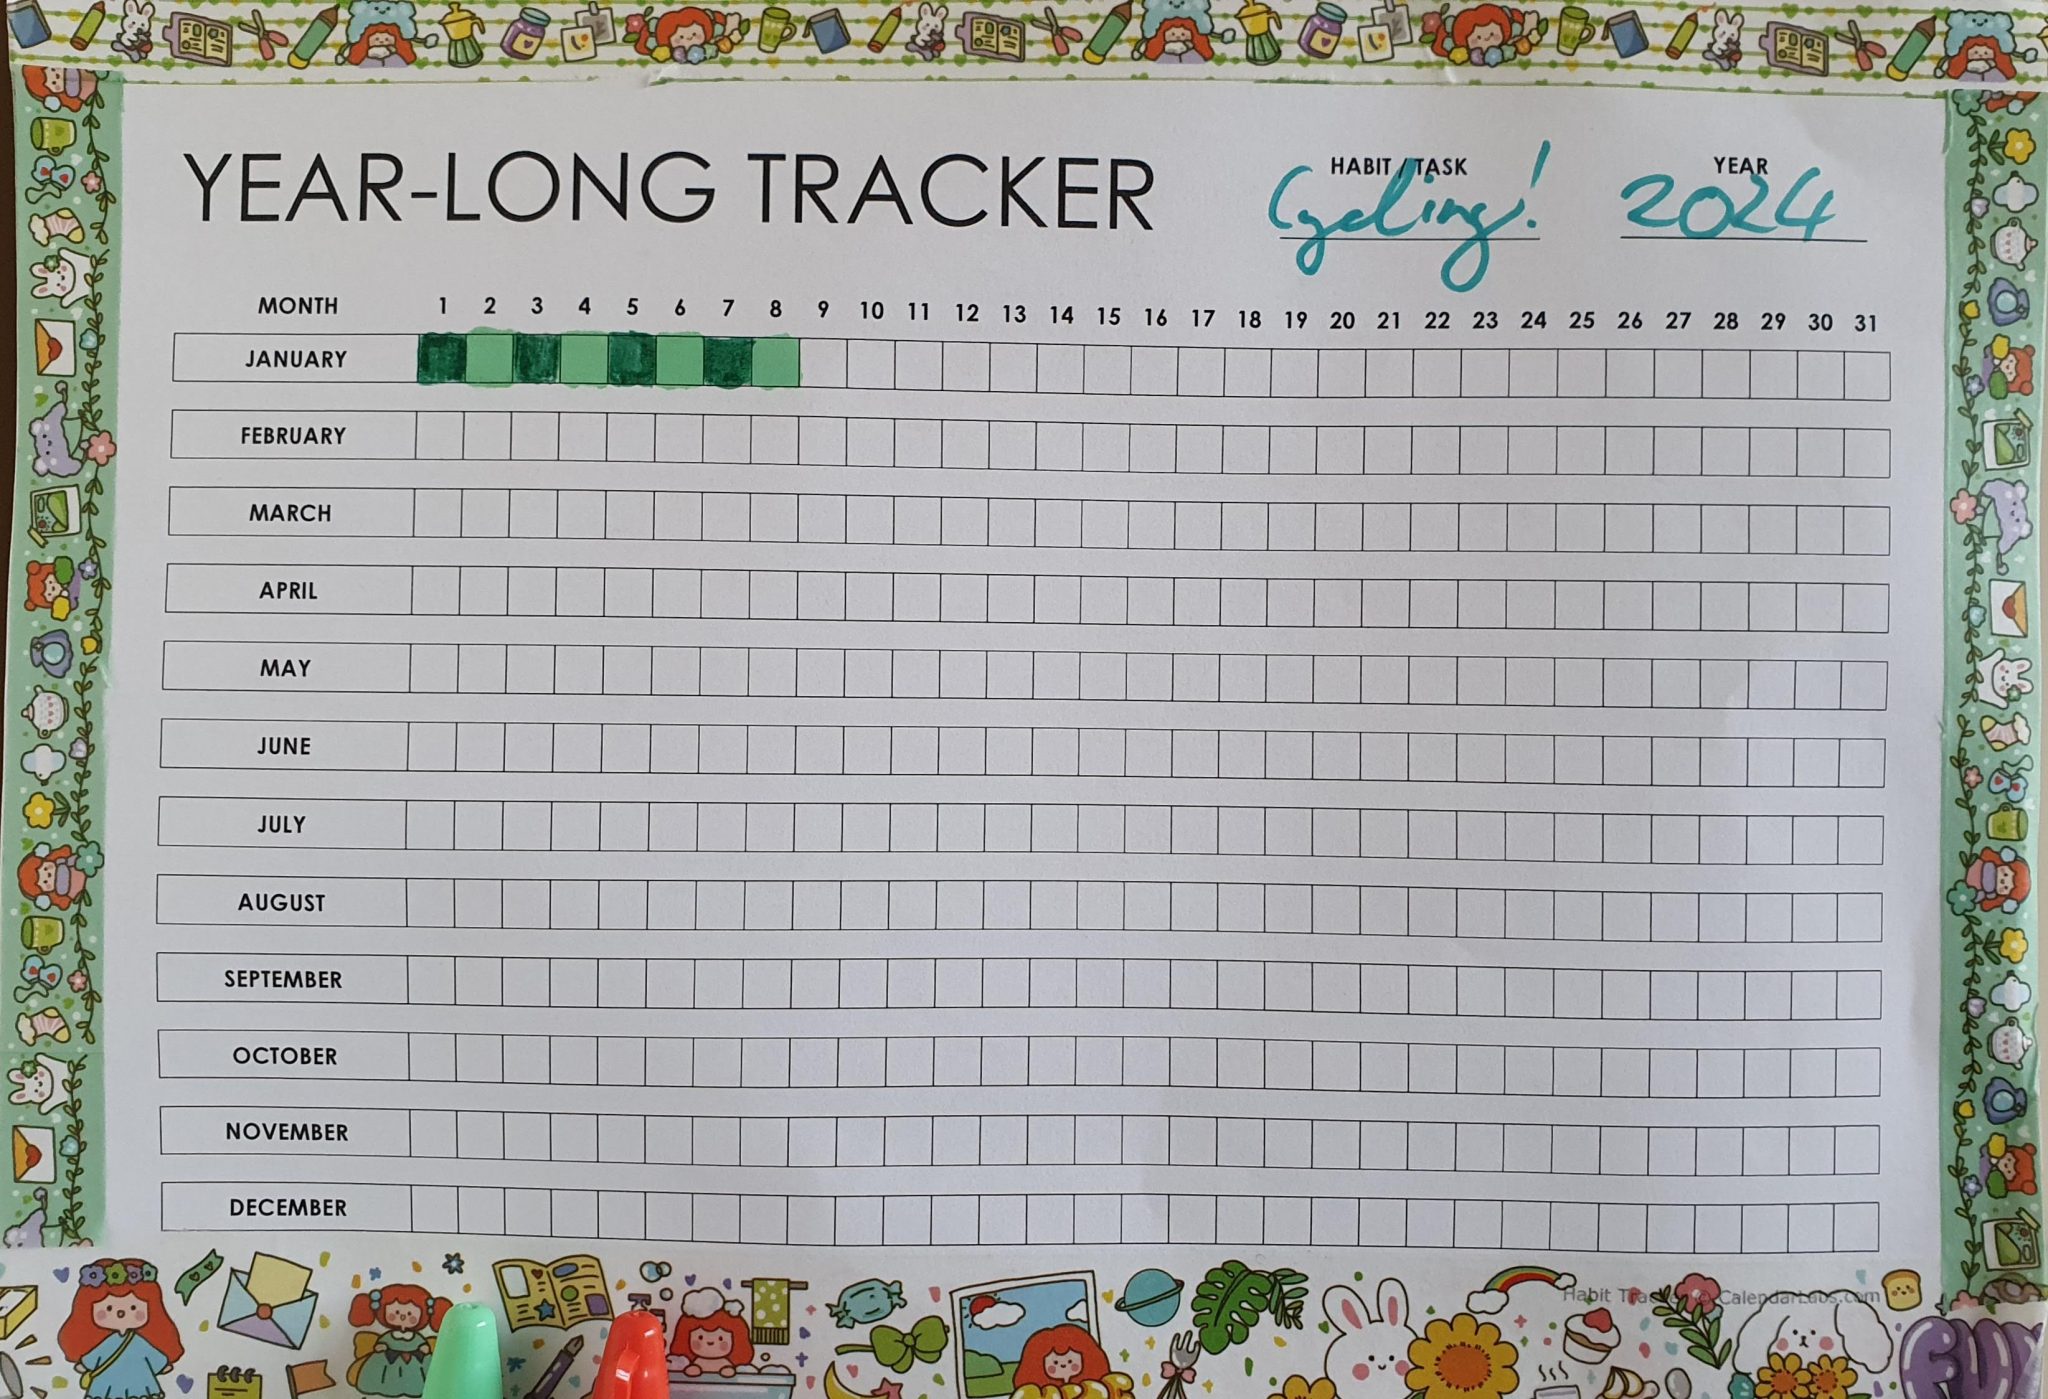 YEAR-LONG TRACKER
HABIT / TASK
Cycling!
YEAR
2024
MONTH 1 2 3 4 5 6 7 8 9 10 11 12 13 14 15 16 17 18 19 20 21 22 23 24 25 26 27 28 29 30 31
JANUARY
FEBRUARY
MARCH
APRIL
MAY
JUNE
JULY
AUGUST
SEPTEMBER
OCTOBER
NOVEMBER
DECEMBER
Habit Tracker © CalendarLabs.com